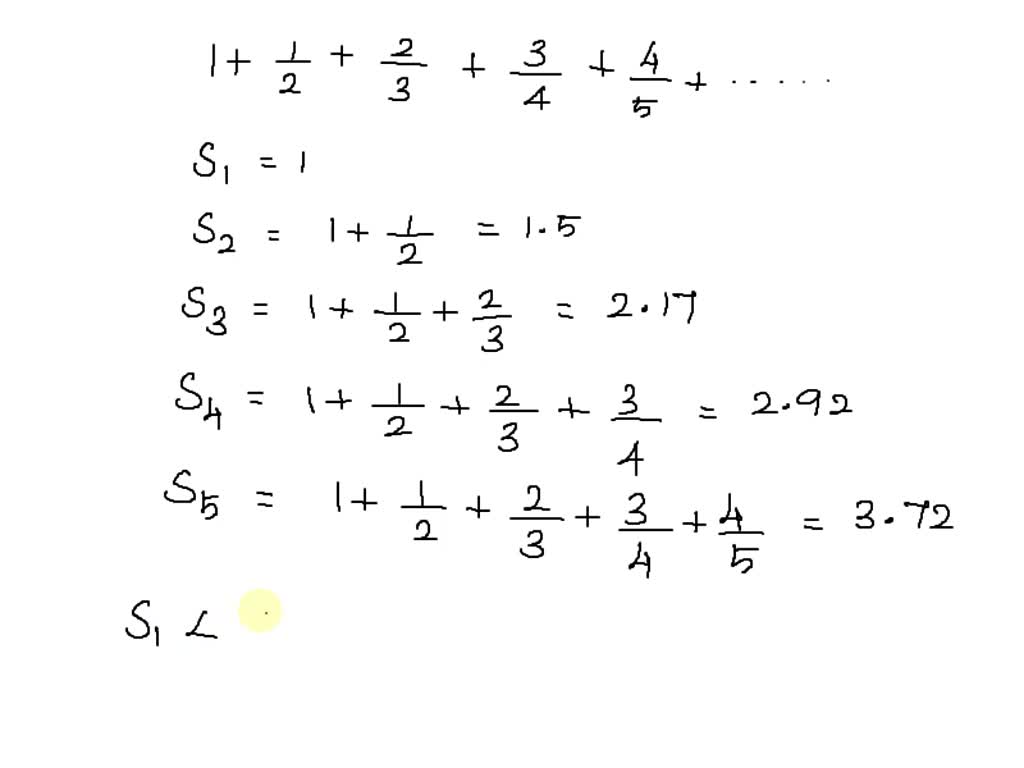 1 + 1/2 + 2/3 + 3/4 + 4/5 + .....
S1 = 1
S2 = 1 + 1/2 = 1.5
S3 = 1 + 1/2 + 2/3 = 2.17
S4 = 1 + 1/2 + 2/3 + 3/4 = 2.92
S5 = 1 + 1/2 + 2/3 + 3/4 + 4/5 = 3.72
S1 <